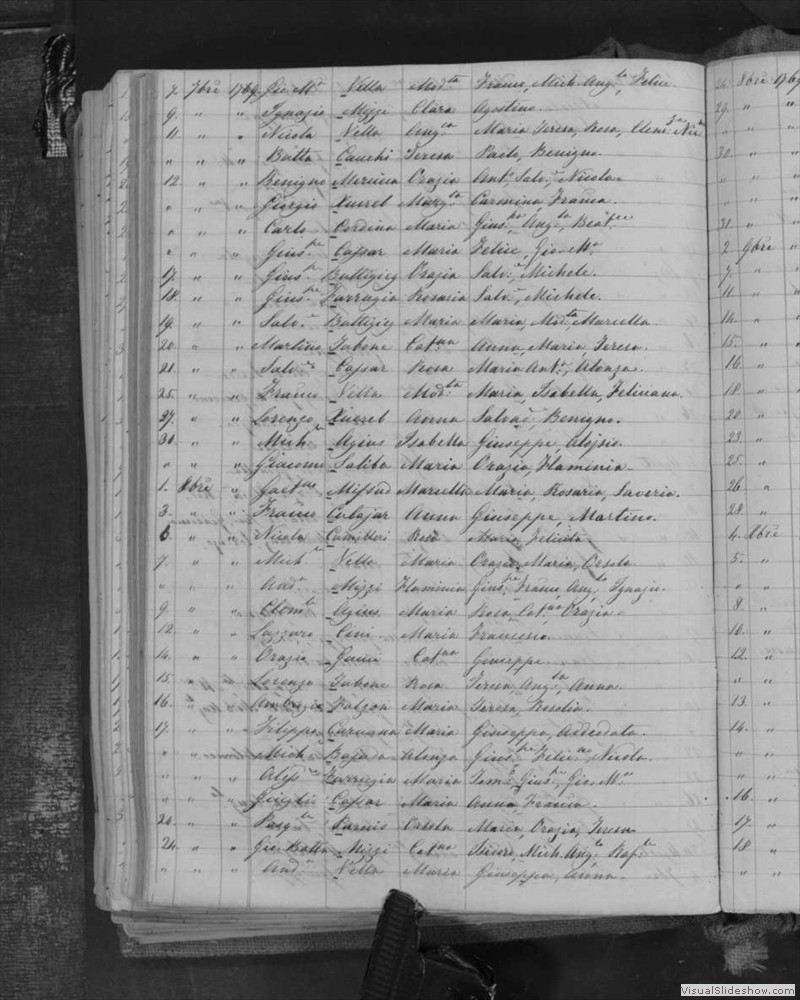 7. 7bre 1769. Gio Mª Vella Mod.ta Franco, Mich. Ang.lo, Felice
9. " " Ignazio Mizzi Clara Agostino
11. " " Nicola Vella Ang.ca Maria Teresa, Rosa, Clem.za
" " " Batta Cauchi Teresa Paolo, Benigno.
12 " " Benigno Orazia Ant.º Salv.r, Nicola.
" " " Giorgio Xuereb Marg.ta Carmina, Franca.
" " " Carlo Cordina Maria Gius.pa Ang.la, Beat.ce
" " " Gius.pe Cassar Maria Felice, Gio Mª
17. " " Gius.pe Buttigieg Orazia Salv.r, Michele.
18. " " Gius.pe Farrugia Rosaria Salv.r, Michele.
19. " " Salv.r Buttigieg Maria Maria, Mod.ta Marcella
20. " " Martino Tabone Cat.na Anna, Maria, Teresa.
21. " " Salv.r Cassar Rosa Maria Ant.a, Alonza.
25. " " Franco Vella Mod.ta Maria, Isabella, Feliciana.
27. " " Lorenzo Xuereb Anna Salvad.r Benigno.
30. " " Mich.e Agius Isabella Giuseppe, Alojsio.
" " " Giacomo Saliba Maria Orazia, Flaminia.
1. 8bre " Gaet.no Mifsud Marcella Maria, Rosaria, Saveria.
3. " " Franco Anna Giuseppe, Martino.
6. " " Nicola Camilleri Rosa Maria, Felicita.
7. " " Mich.e Vella Maria Orazia, Maria, Orsola.
" " " And.a Mizzi Flaminia Gius.pe Franco, Ang.lo Ignazio.
9. " " Clem.te Agius Maria Rosa, Cat.na Orazia
12. " " Lazzaro Cini Maria Francesco
14. " " Orazio Gauci Cat.na Giuseppe
15. " " Lorenzo Tabone Rosa Teresa, Ang.la Anna.
16. " " Ambrogio Falzon Maria Teresa, Rosolia.
17. " " Filippo Caruana Maria Giuseppa, Addeodata.
" " " Mich.e Bajada Alonza Gius.pe Felic.no, Nicola.
" " " Aless.o Farrugia Maria Tom.o Gius.pe, Gio Mª
" " " Cassar Maria Anna, Franca.
20. " " Pasq.le Farnis Orsola Maria, Orazia, Teresa
24. " " Gio Batta Mizzi Cat.na Isidoro, Mich. Ang.lo Raf.le
" " " And.a Vella Maria Giuseppa, Anna.
26. 8bre 1769
29. "
" "
30. "
31. "
2 9bre
7. "
11 "
14. "
15. "
16. "
18 "
20 "
23. "
25. "
26. "
28. "
4. Xbre
5. "
" "
8. "
10. "
12. "
" "
13. "
14. "
" "
" "
16. "
17. "
18 "
VisualSlideshow.com